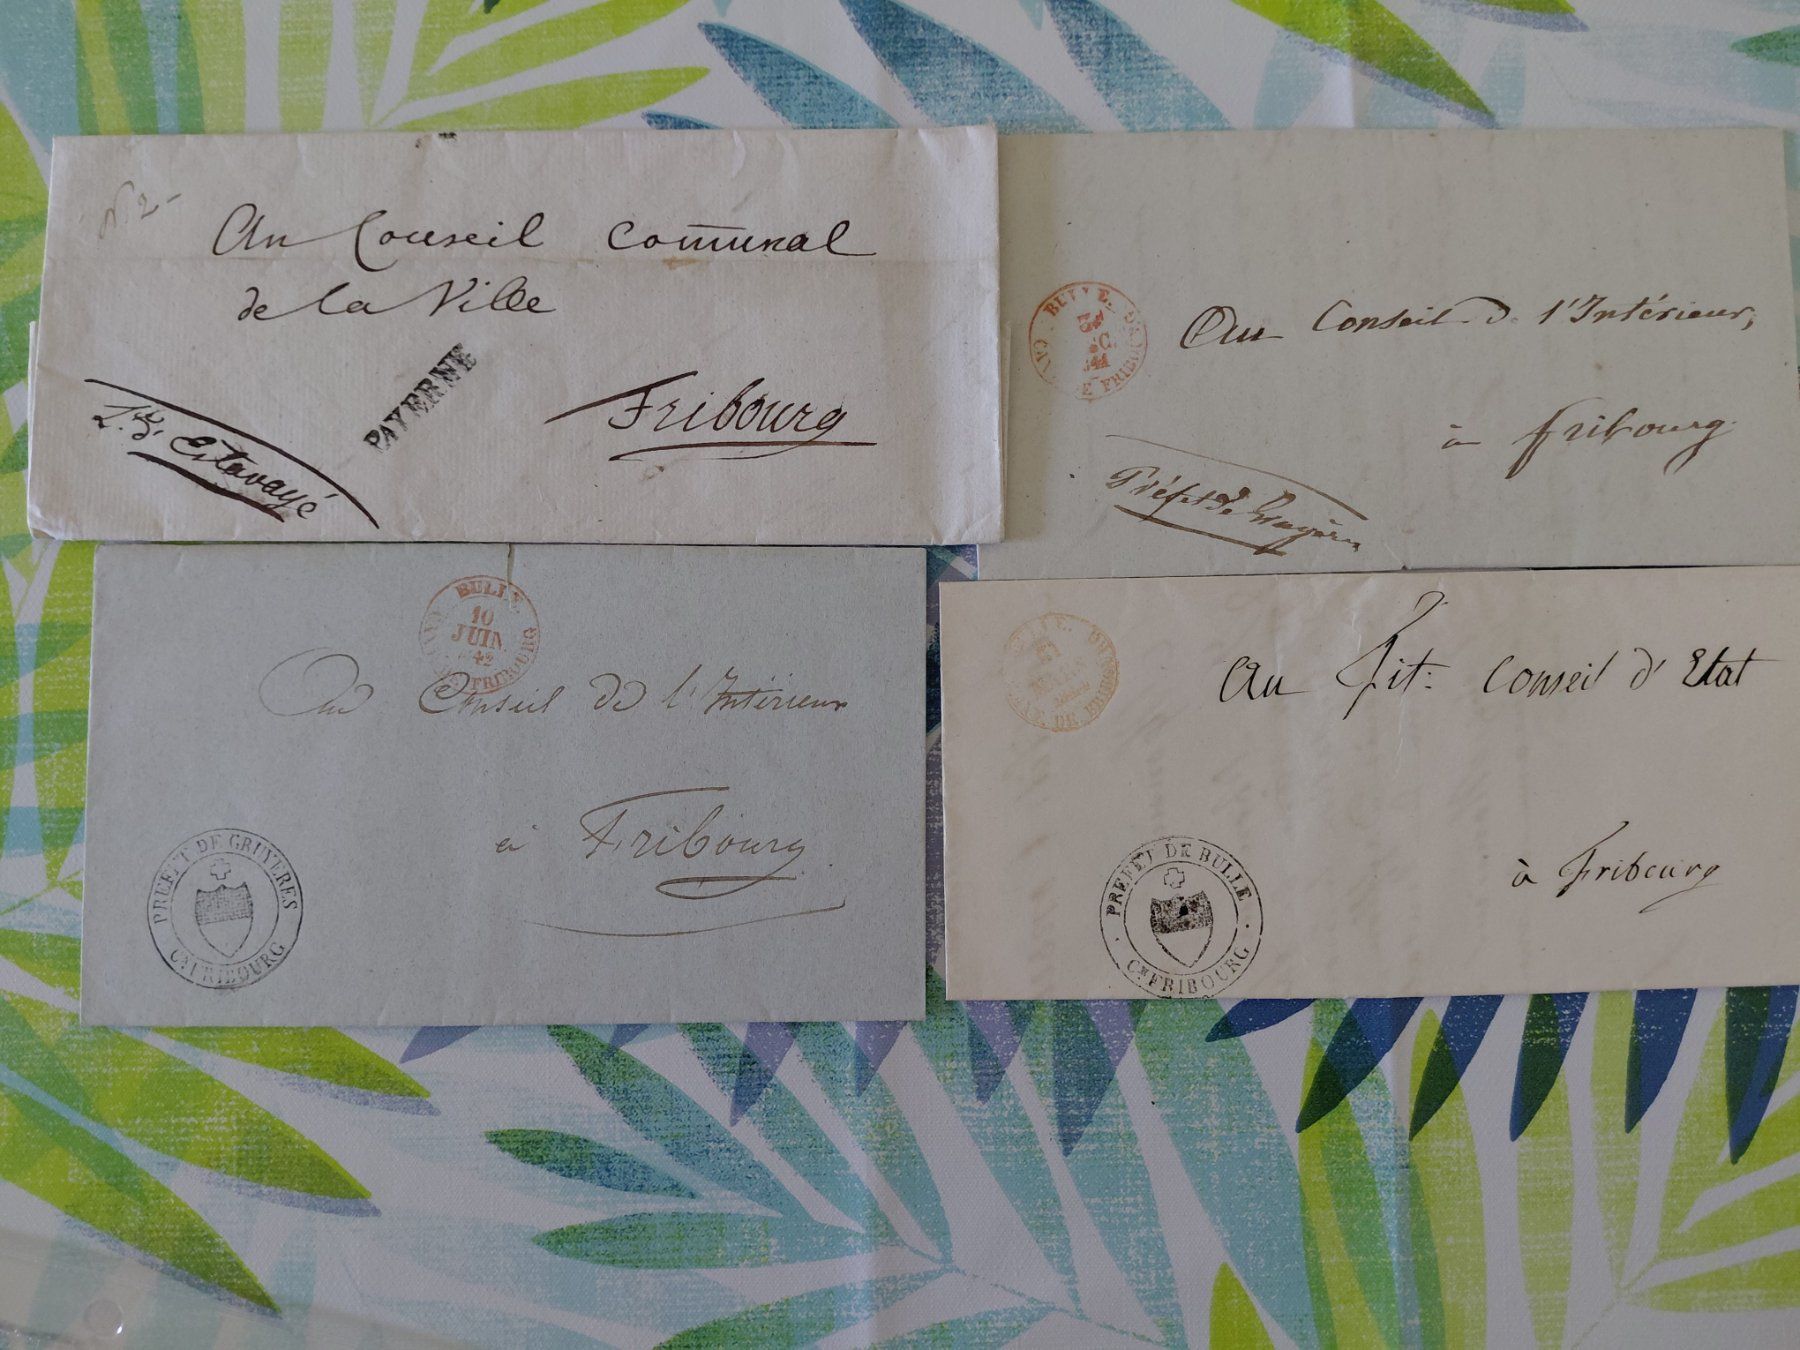 N. 2 -
Au Conseil Com̅unal
de la Ville
PAYERNE
Fribourg
Estavayé
BULLE.
DEC.
CANT. DE FRIBOURG
Au Conseil de l'Intérieur,
à Fribourg
Préfet de Gruyères
BULLE.
10
JUIN
1842
CANT. DE FRIBOURG
Au Conseil de l'Intérieur
à Fribourg
PRÉFET DE GRUYÈRES
Cn. FRIBOURG
BULLE.
DE FRIBOURG
Au Pit: Conseil d'Etat
à Fribourg
PRÉFET DE BULLE
Cn. FRIBOURG